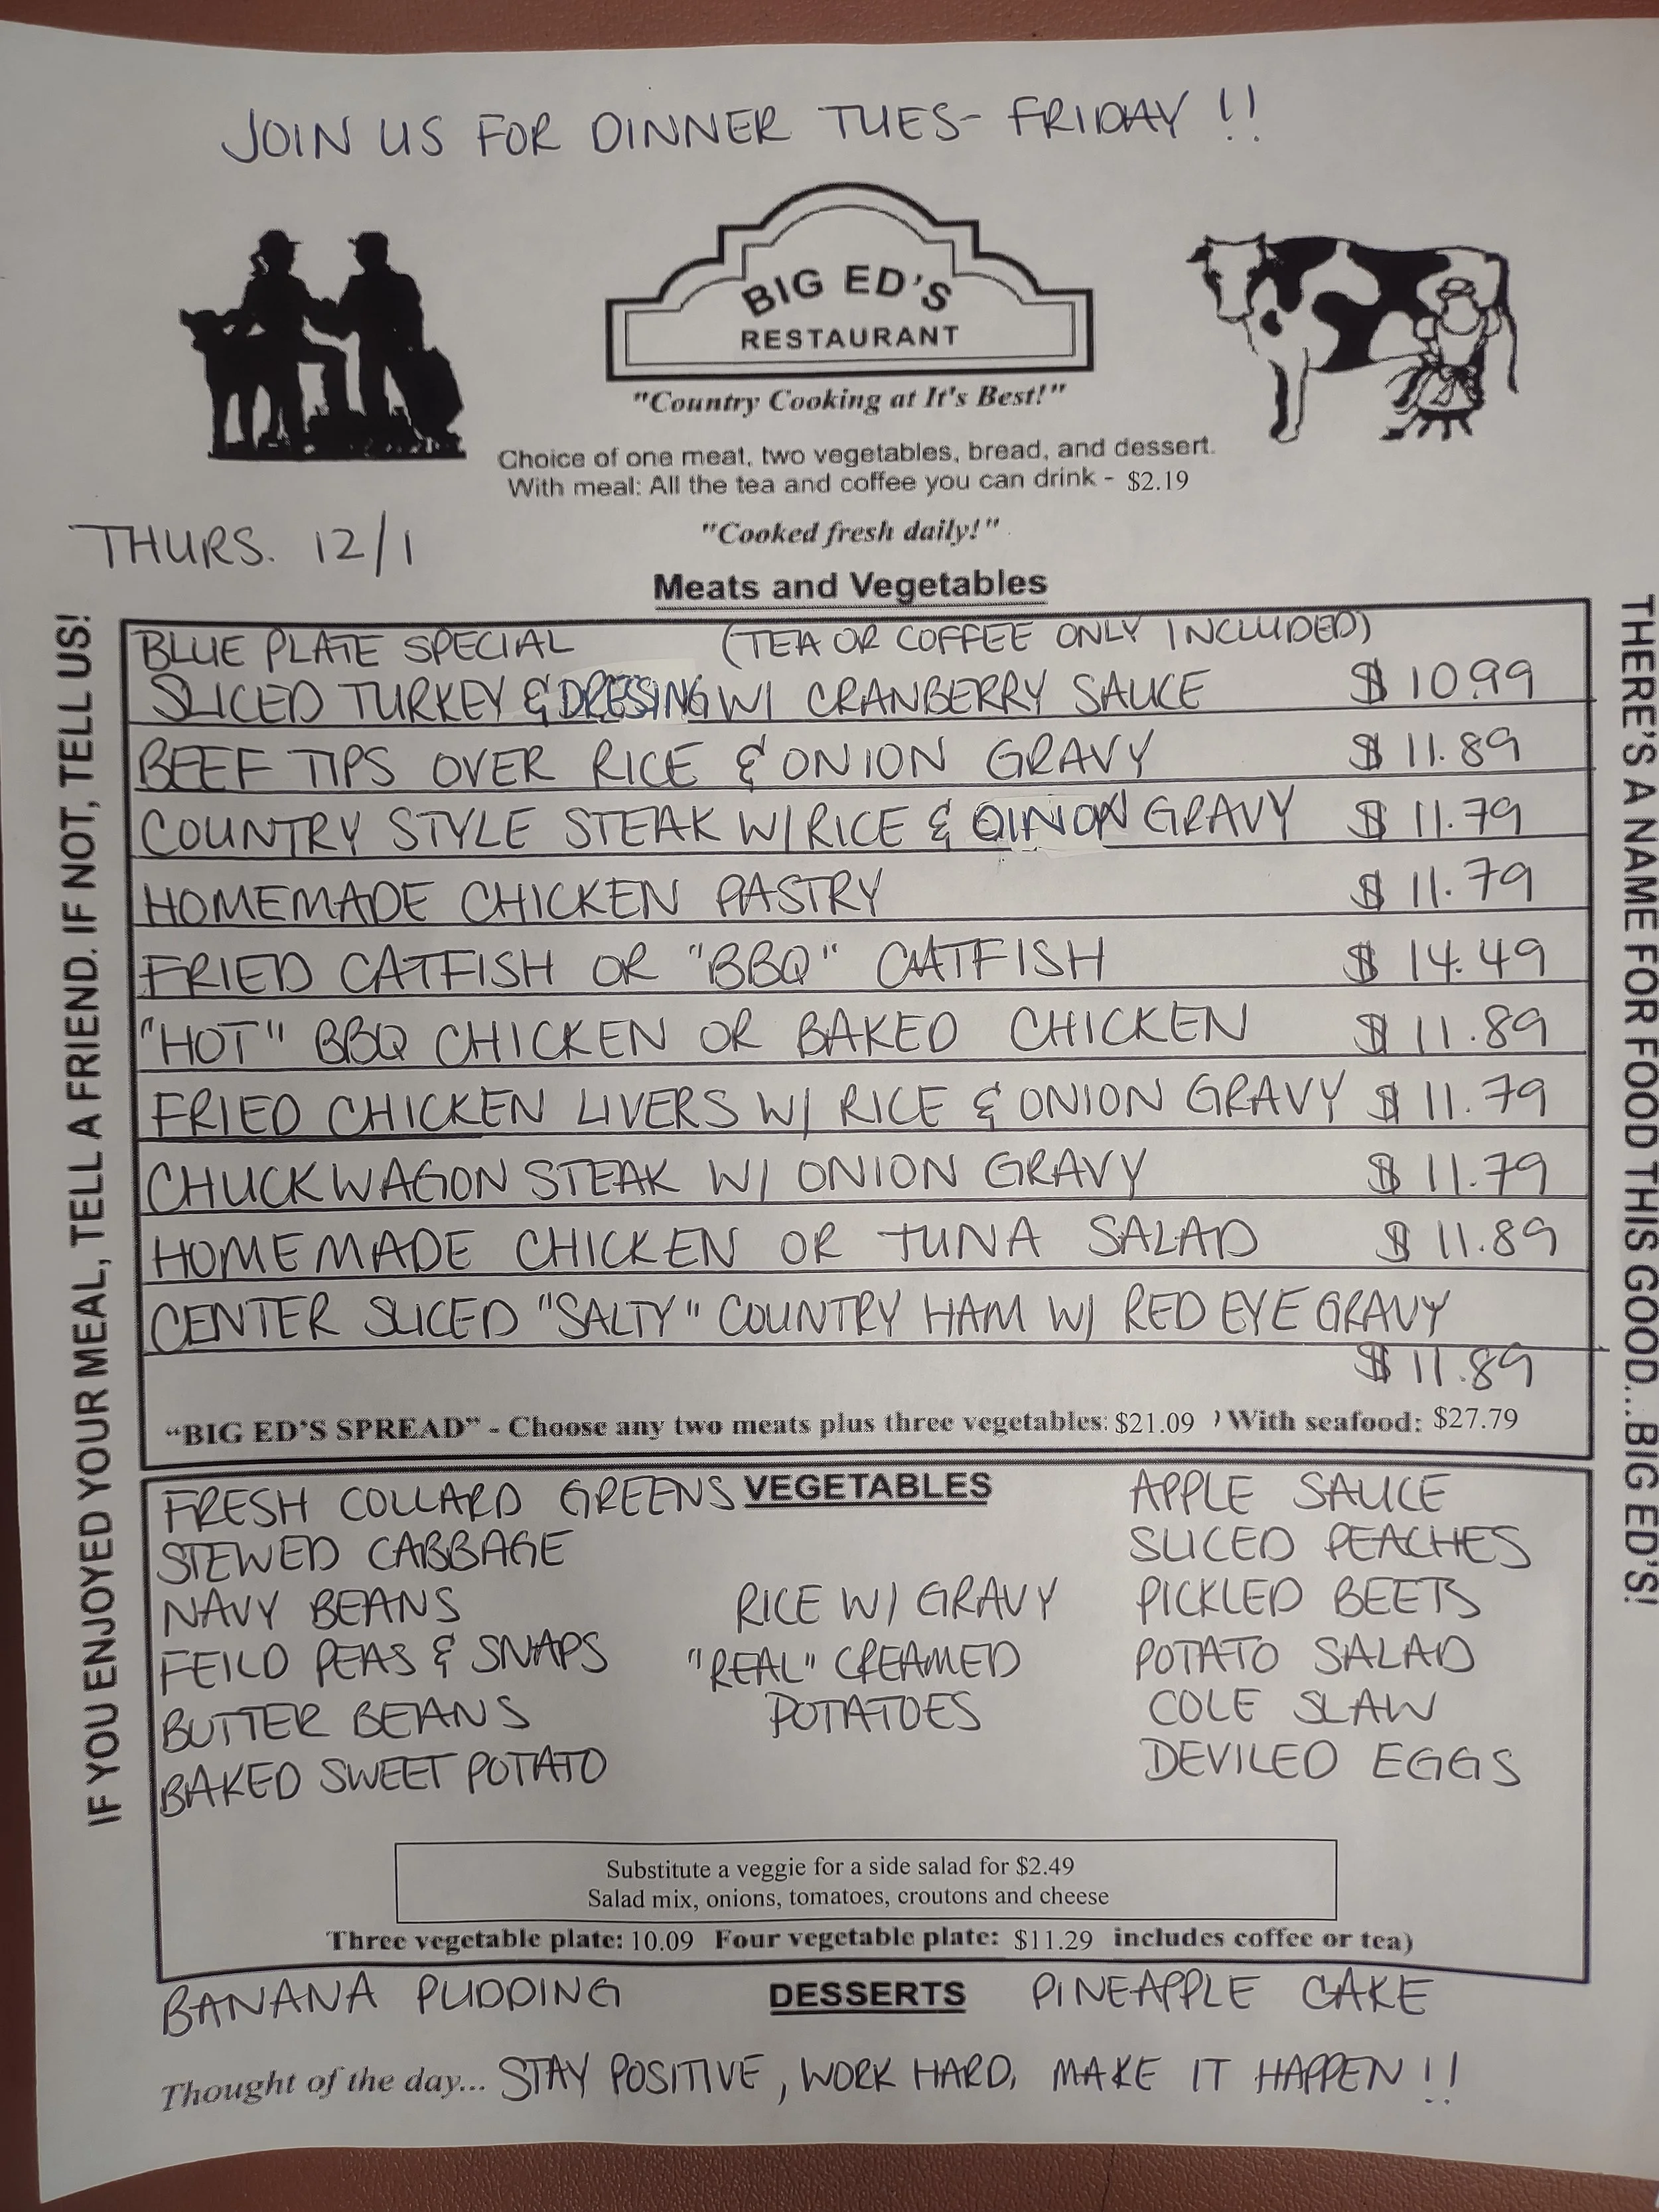 JOIN US FOR DINNER TUES- FRIDAY !!
BIG ED'S
RESTAURANT
"Country Cooking at It's Best!"
Choice of one meat, two vegetables, bread, and dessert.
With meal: All the tea and coffee you can drink - $2.19
"Cooked fresh daily!"
THURS. 12/1
Meats and Vegetables
IF YOU ENJOYED YOUR MEAL, TELL A FRIEND. IF NOT, TELL US!
BLUE PLATE SPECIAL (TEA OR COFFEE ONLY INCLUDED)
SLICED TURKEY & DRESING W/ CRANBERRY SAUCE $ 10.99
BEEF TIPS OVER RICE & ONION GRAVY $ 11.89
COUNTRY STYLE STEAK W/ RICE & OINION GRAVY $ 11.79
HOMEMADE CHICKEN PASTRY $ 11.79
FRIED CATFISH OR "BBQ" CATFISH $ 14.49
"HOT" BBQ CHICKEN OR BAKED CHICKEN $ 11.89
FRIED CHICKEN LIVERS W/ RICE & ONION GRAVY $ 11.79
CHUCKWAGON STEAK W/ ONION GRAVY $ 11.79
HOMEMADE CHICKEN OR TUNA SALAD $ 11.89
CENTER SLICED "SALTY" COUNTRY HAM W/ RED EYE GRAVY
$ 11.89
"BIG ED'S SPREAD" - Choose any two meats plus three vegetables: $21.09 ) With seafood: $27.79
THERE'S A NAME FOR FOOD THIS GOOD...BIG ED'S!
VEGETABLES
FRESH COLLARD GREENS
STEWED CABBAGE
NAVY BEANS
FEILD PEAS & SNAPS
BUTTER BEANS
BAKED SWEET POTATO
RICE W/ GRAVY
"REAL" CREAMED
POTATOES
APPLE SAUCE
SLICED PEACHES
PICKLED BEETS
POTATO SALAD
COLE SLAW
DEVILED EGGS
Substitute a veggie for a side salad for $2.49
Salad mix, onions, tomatoes, croutons and cheese
Three vegetable plate: 10.09 Four vegetable plate: $11.29 includes coffee or tea)
BANANA PUDDING DESSERTS PINEAPPLE CAKE
Thought of the day... STAY POSITIVE, WORK HARD, MAKE IT HAPPEN !!